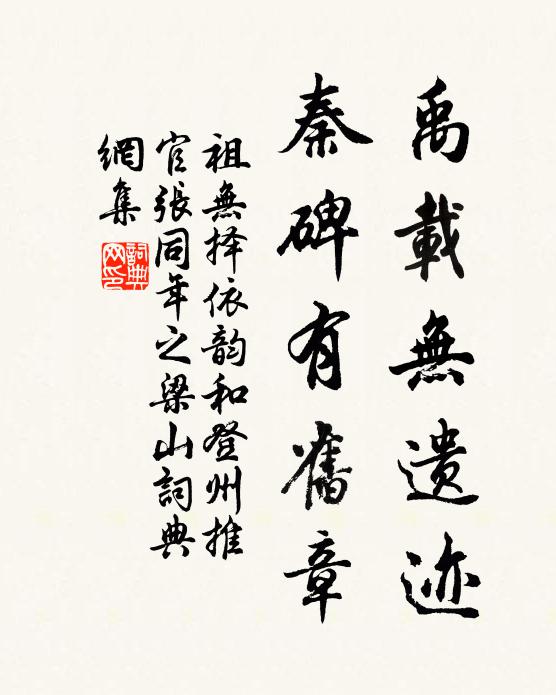 禹載無遺迹
秦碑有舊章
祖無择依韵和登州推
官張同年之梁山詞典
網集
詞典
网印